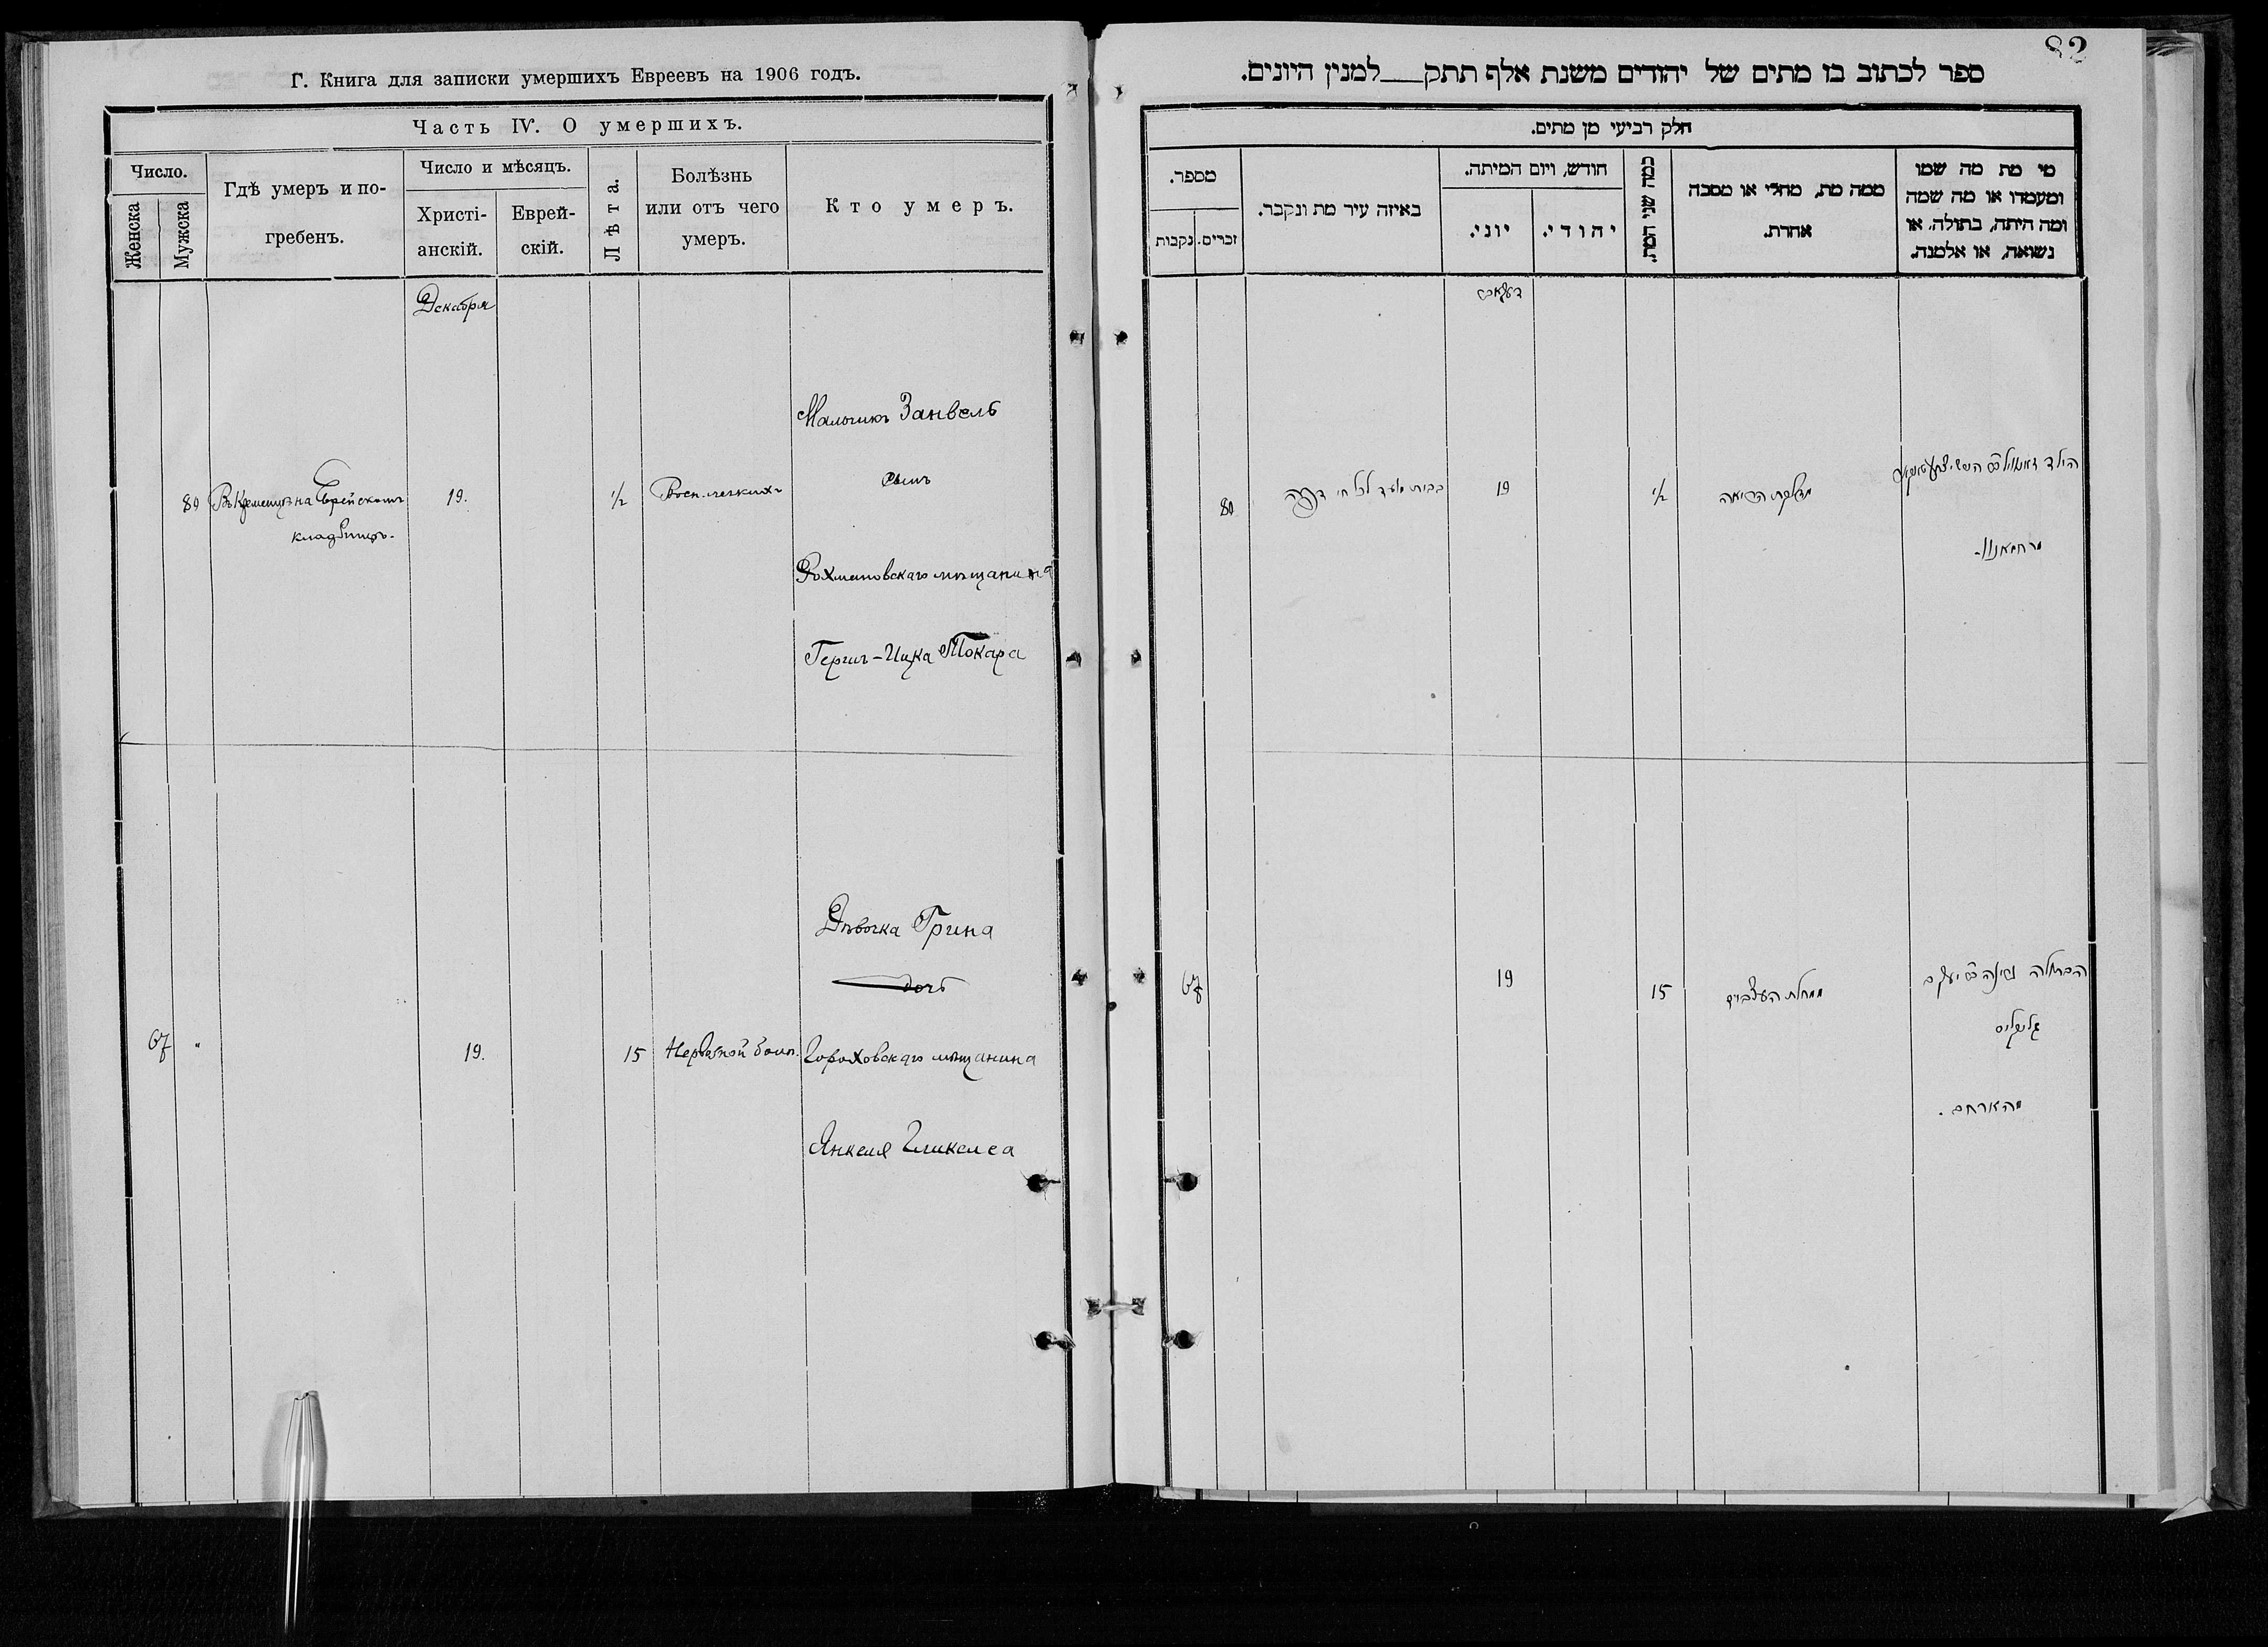 Г. Книга для записки умершихъ Евреевъ на 1906 годъ.
Часть IV. О умершихъ.
Число.
Женска
Мужска
Гдѣ умеръ и по-
гребенъ.
Число и мѣсяцъ.
Христі-
анскій.
Еврей-
скій.
Лѣта.
Болѣзнь
или отъ чего
умеръ.
Кто умеръ.
Декабря
Мальчикъ Занвель
сынъ
80 Въ Кременцѣ на Еврейскомъ 19. 1/2 Восп. легкихъ
кладбищѣ.
Рохмановскаго мѣщанина
Герша-Ицка Токара
Дѣвочка Грина
дочь
67 " 19. 15 Нервной бол. Гороховскаго мѣщанина
Янкеля Гликелса
82
ספר לכתוב בו מתים של יהודים משנת אלף תתק למנין היונים.
חלק רביעי מן מתים.
מי מת מה שמו
ומעמדו או מה שמה
ומה היתה, בתולה, או
נשואה, או אלמנה.
ממה מת, מחלי או מסבה
אחרת.
כמה שני המת.
חודש, ויום המיתה.
יהודי.
יוני.
באיזה עיר מת ונקבר.
מספר.
זכרים.
נקבות
הילד
1/2
19
בבית מועד לכל חי
80
הבתולה יעקב
15
19
67